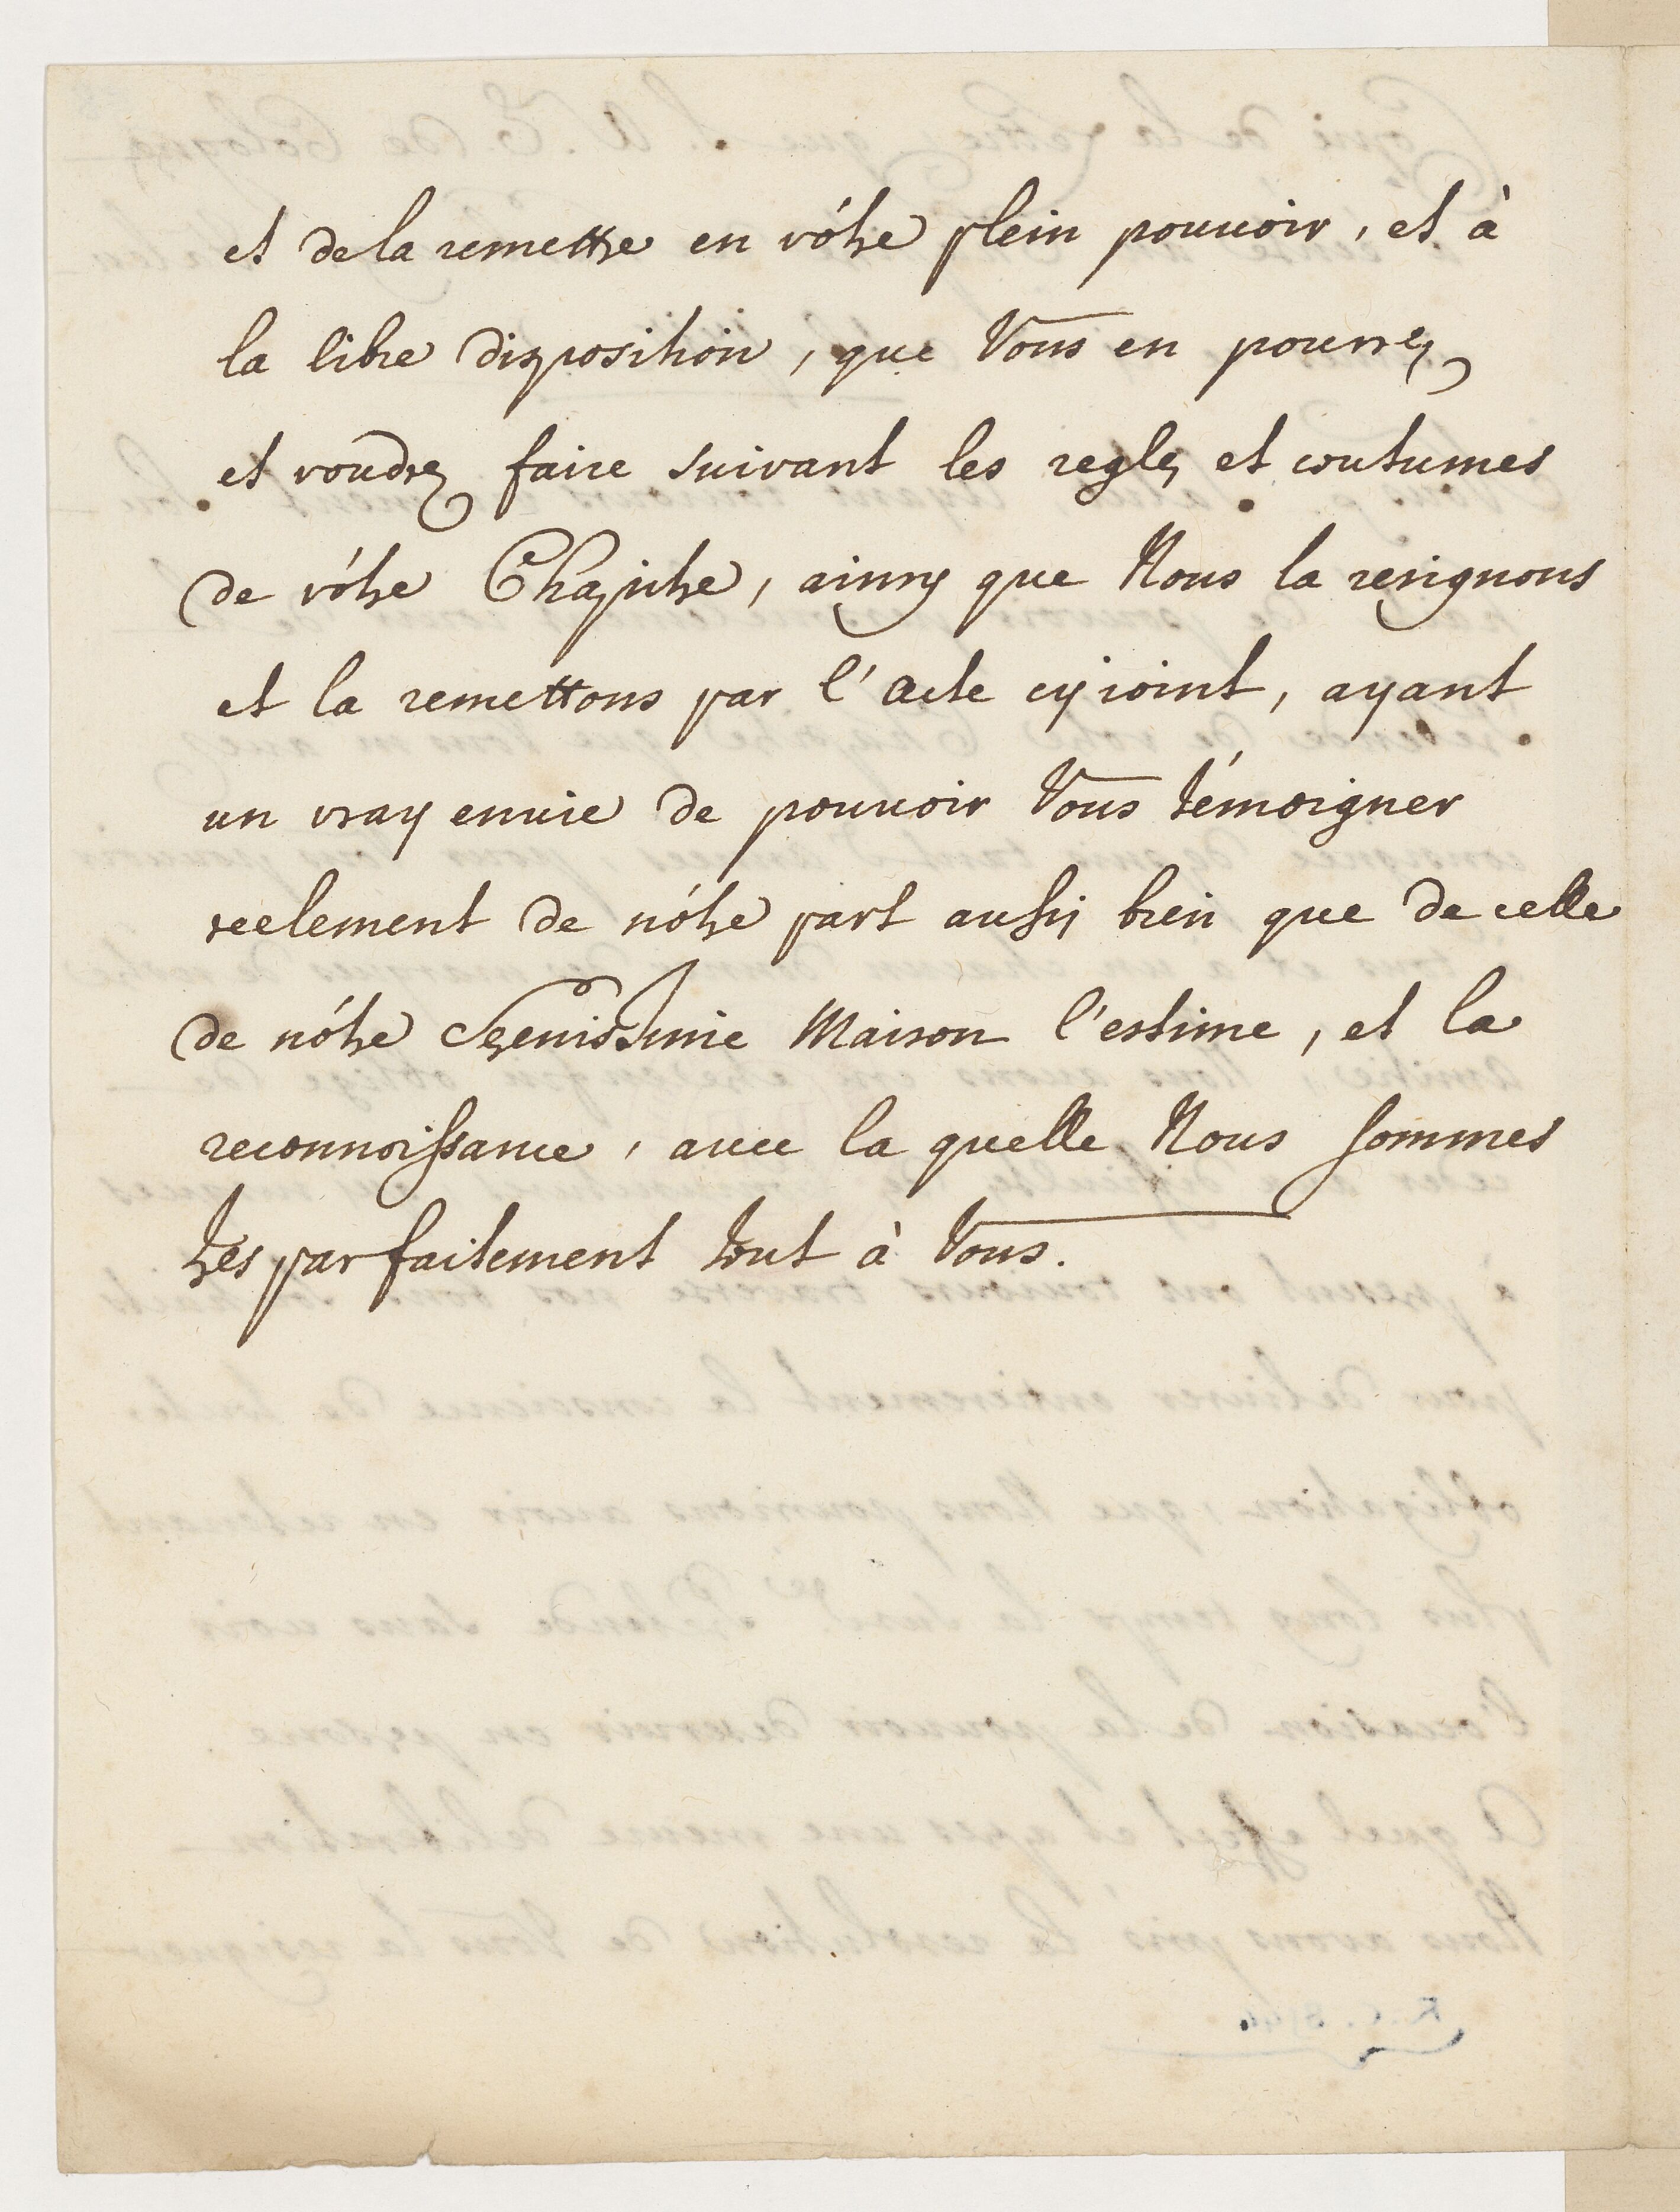 et de la remettre en vôtre plein pouuoir, et à
la libre disposition, que Vous en pourrez
et voudrez faire suivant les regles et coutumes
de vôtre Chapitre, ainsy que Nous la resignons
et la remettons par l'acte cyioint, ayant
un vray enuie de pouuoir Vous témoigner
reelement de nôtre part aussy bien que de celle
de nôtre Serenissime Maison l'estime, et la
reconnoissance, auec la quelle Nous sommes
tres parfaitement tout à Vous.